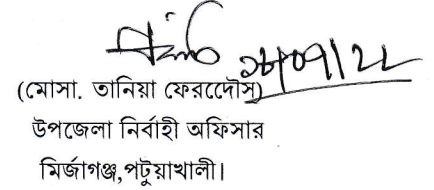 (মোসা. তানিয়া ফেরদৌস)
উপজেলা নির্বাহী অফিসার
মির্জাগঞ্জ,পটুয়াখালী।